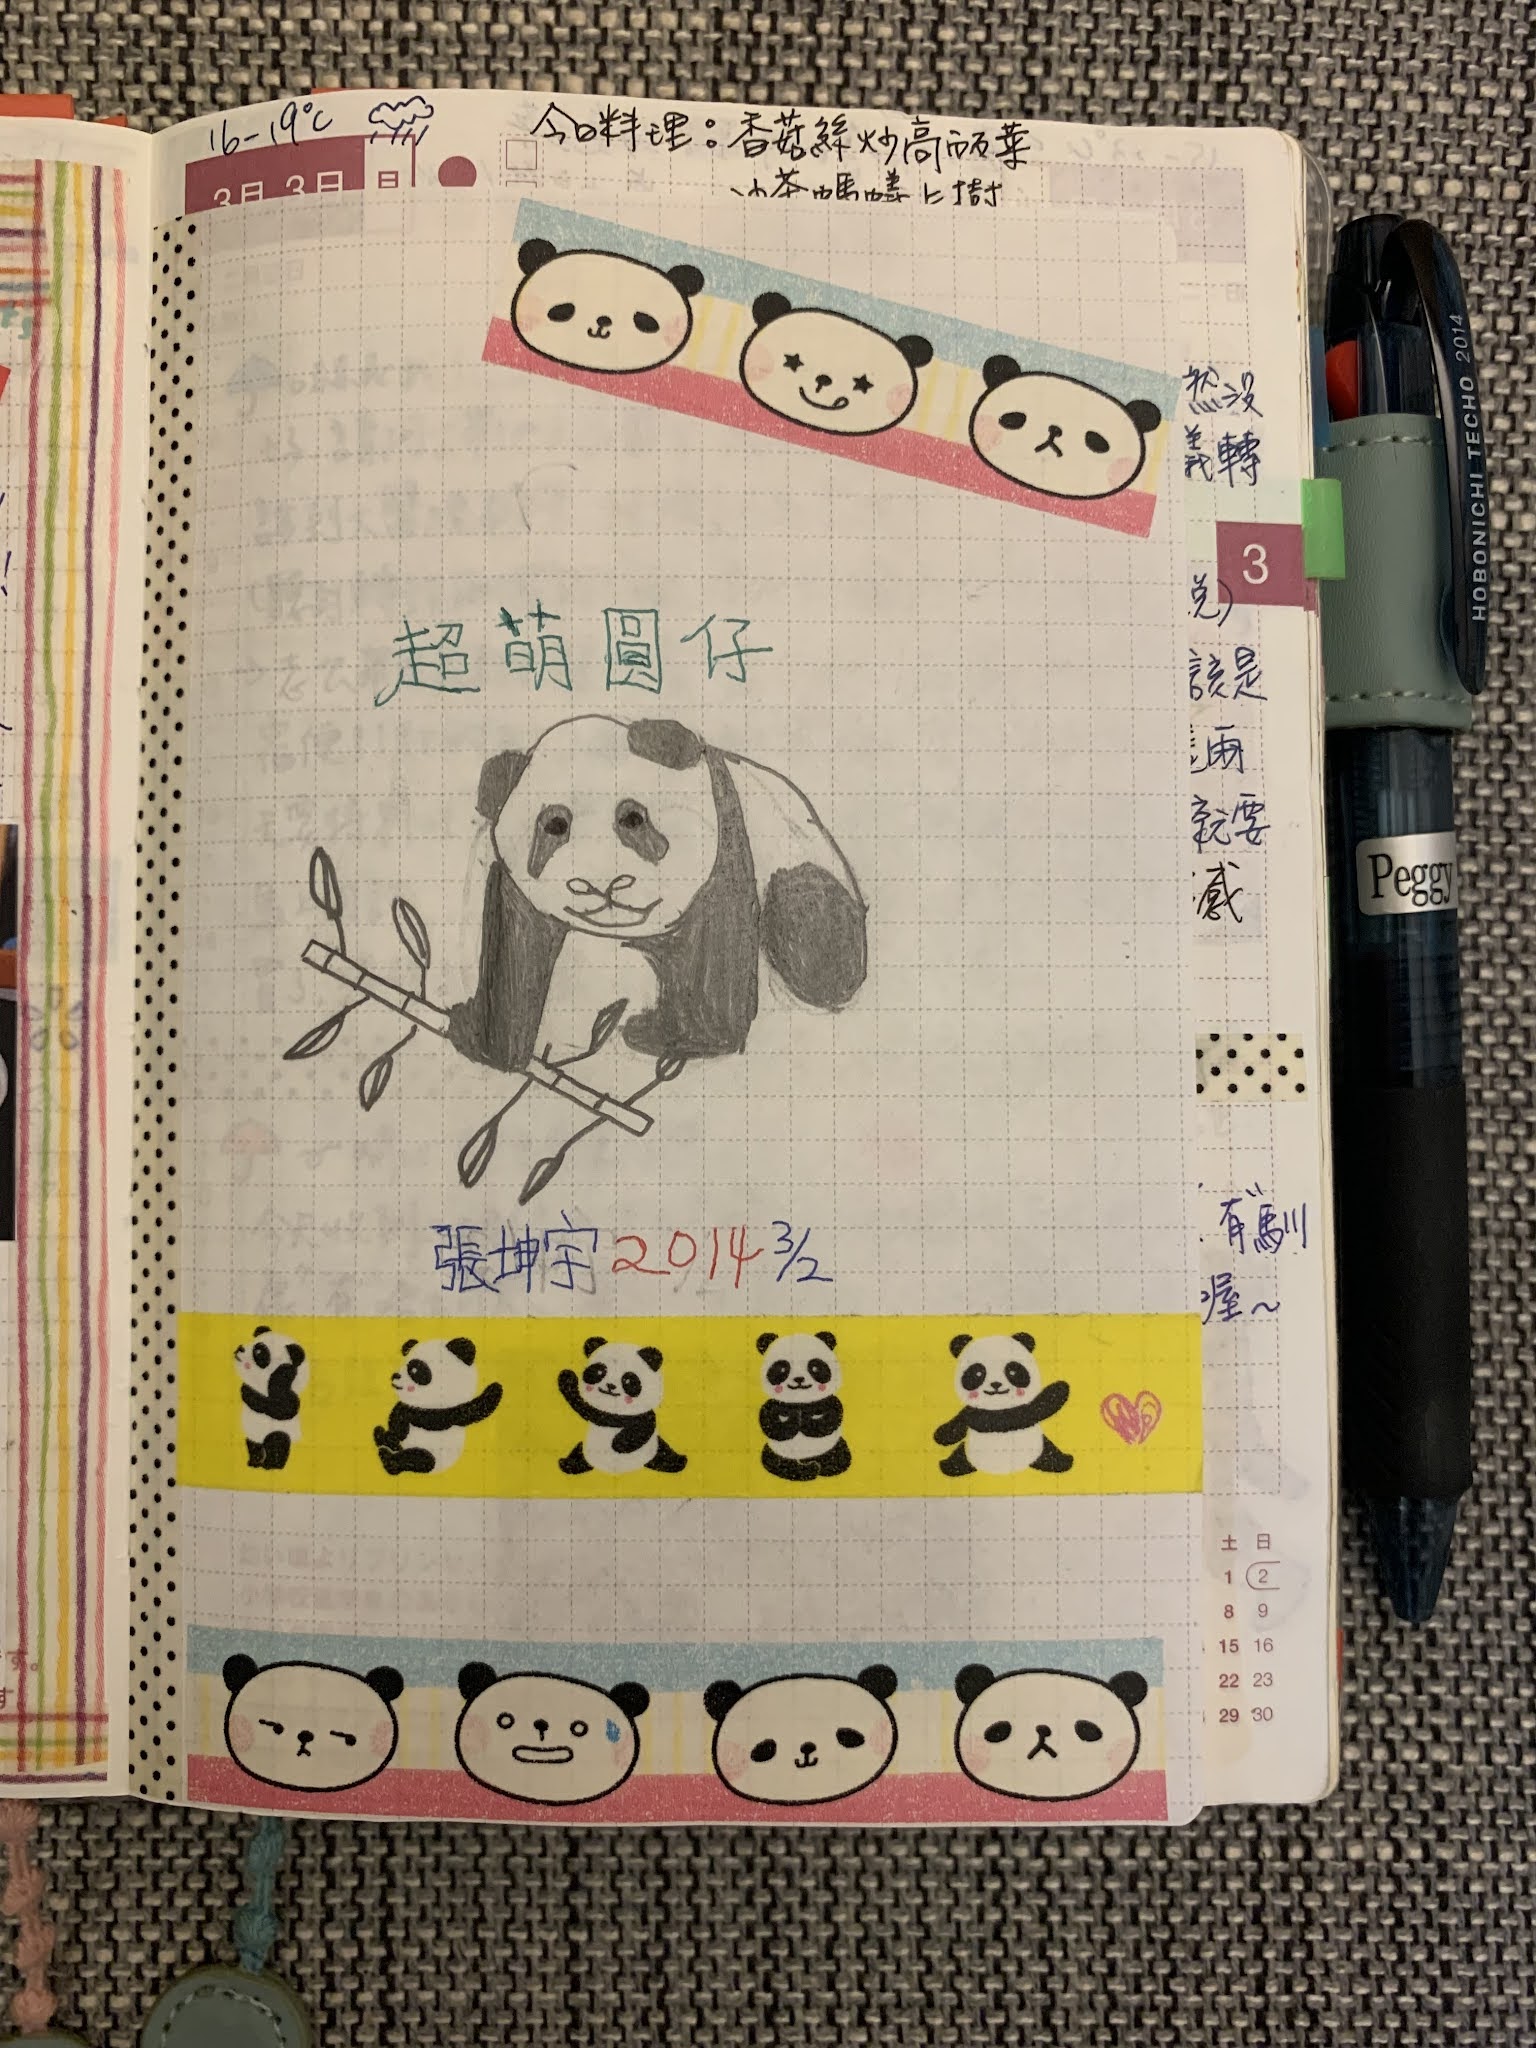 16-19℃
今日料理：香菇絲炒高麗菜
沙茶螞蟻上樹
3月3日
月
然沒
義轉
3
兌)
該是
雨
就要
感
超萌圓仔
張坤宇 2014 3/2
有馴
喔~
土 日
1 2
8 9
15 16
22 23
29 30
HOBONICHI TECHO 2014
Peggy